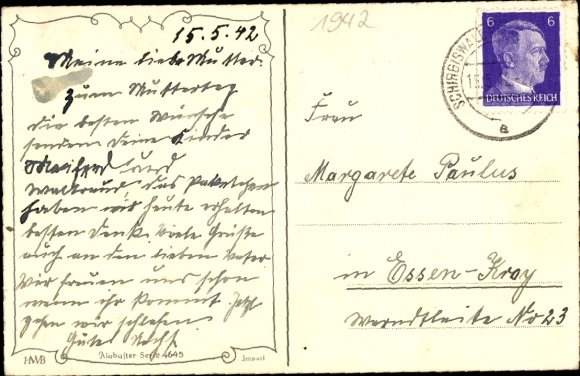 15.5.42
Meine liebe Mutter.
Zum Muttertag
die besten Wünsche
senden Deine Kinder
Manfred und
Waltraud, das Paketchen
haben wir heute erhalten
besten Dank. Viele Grüße
auch an den lieben Vater
Wir freuen uns schon
wenn ihr kommt. Jetzt
gehen wir schlafen
Gute Nacht.
HWB
Alabaster Serie 4645
Import
1942
6 6
DEUTSCHES REICH
SCHIRGISWALDE
a
Frau
Margarete Paulus
in Essen-Kray
No 23